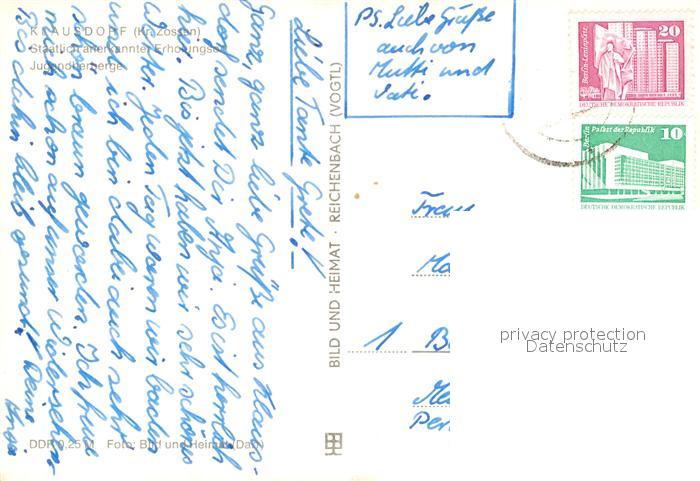 KLAUSDORF (Kr. Zossen)
Staatlich anerkannter Erholungsort
Jugendherberge
Liebe Tante Grete!
Ganz, ganz liebe Grüße aus Klaus-
dorf sendet Dir Anja. Es ist herrlich
hier. Bis jetzt haben wir sehr schönes
Wetter. Jeden Tag waren wir baden
und ich bin dabei auch sehr
schön braun geworden. Ich freue
mich schon auf unser Wiedersehen.
Bis dahin bleib gesund! Deine
Anja
DDR 0,25 M Foto: Bild und Heimat (Darr)
BILD UND HEIMAT · REICHENBACH (VOGTL)
PS. Liebe Grüße
auch von
Mutti und
Vati.
20
Berlin-Leninplatz
DEUTSCHE DEMOKRATISCHE REPUBLIK
10
Berlin Palast der Republik
DEUTSCHE DEMOKRATISCHE REPUBLIK
Frau
1
privacy protection
Datenschutz